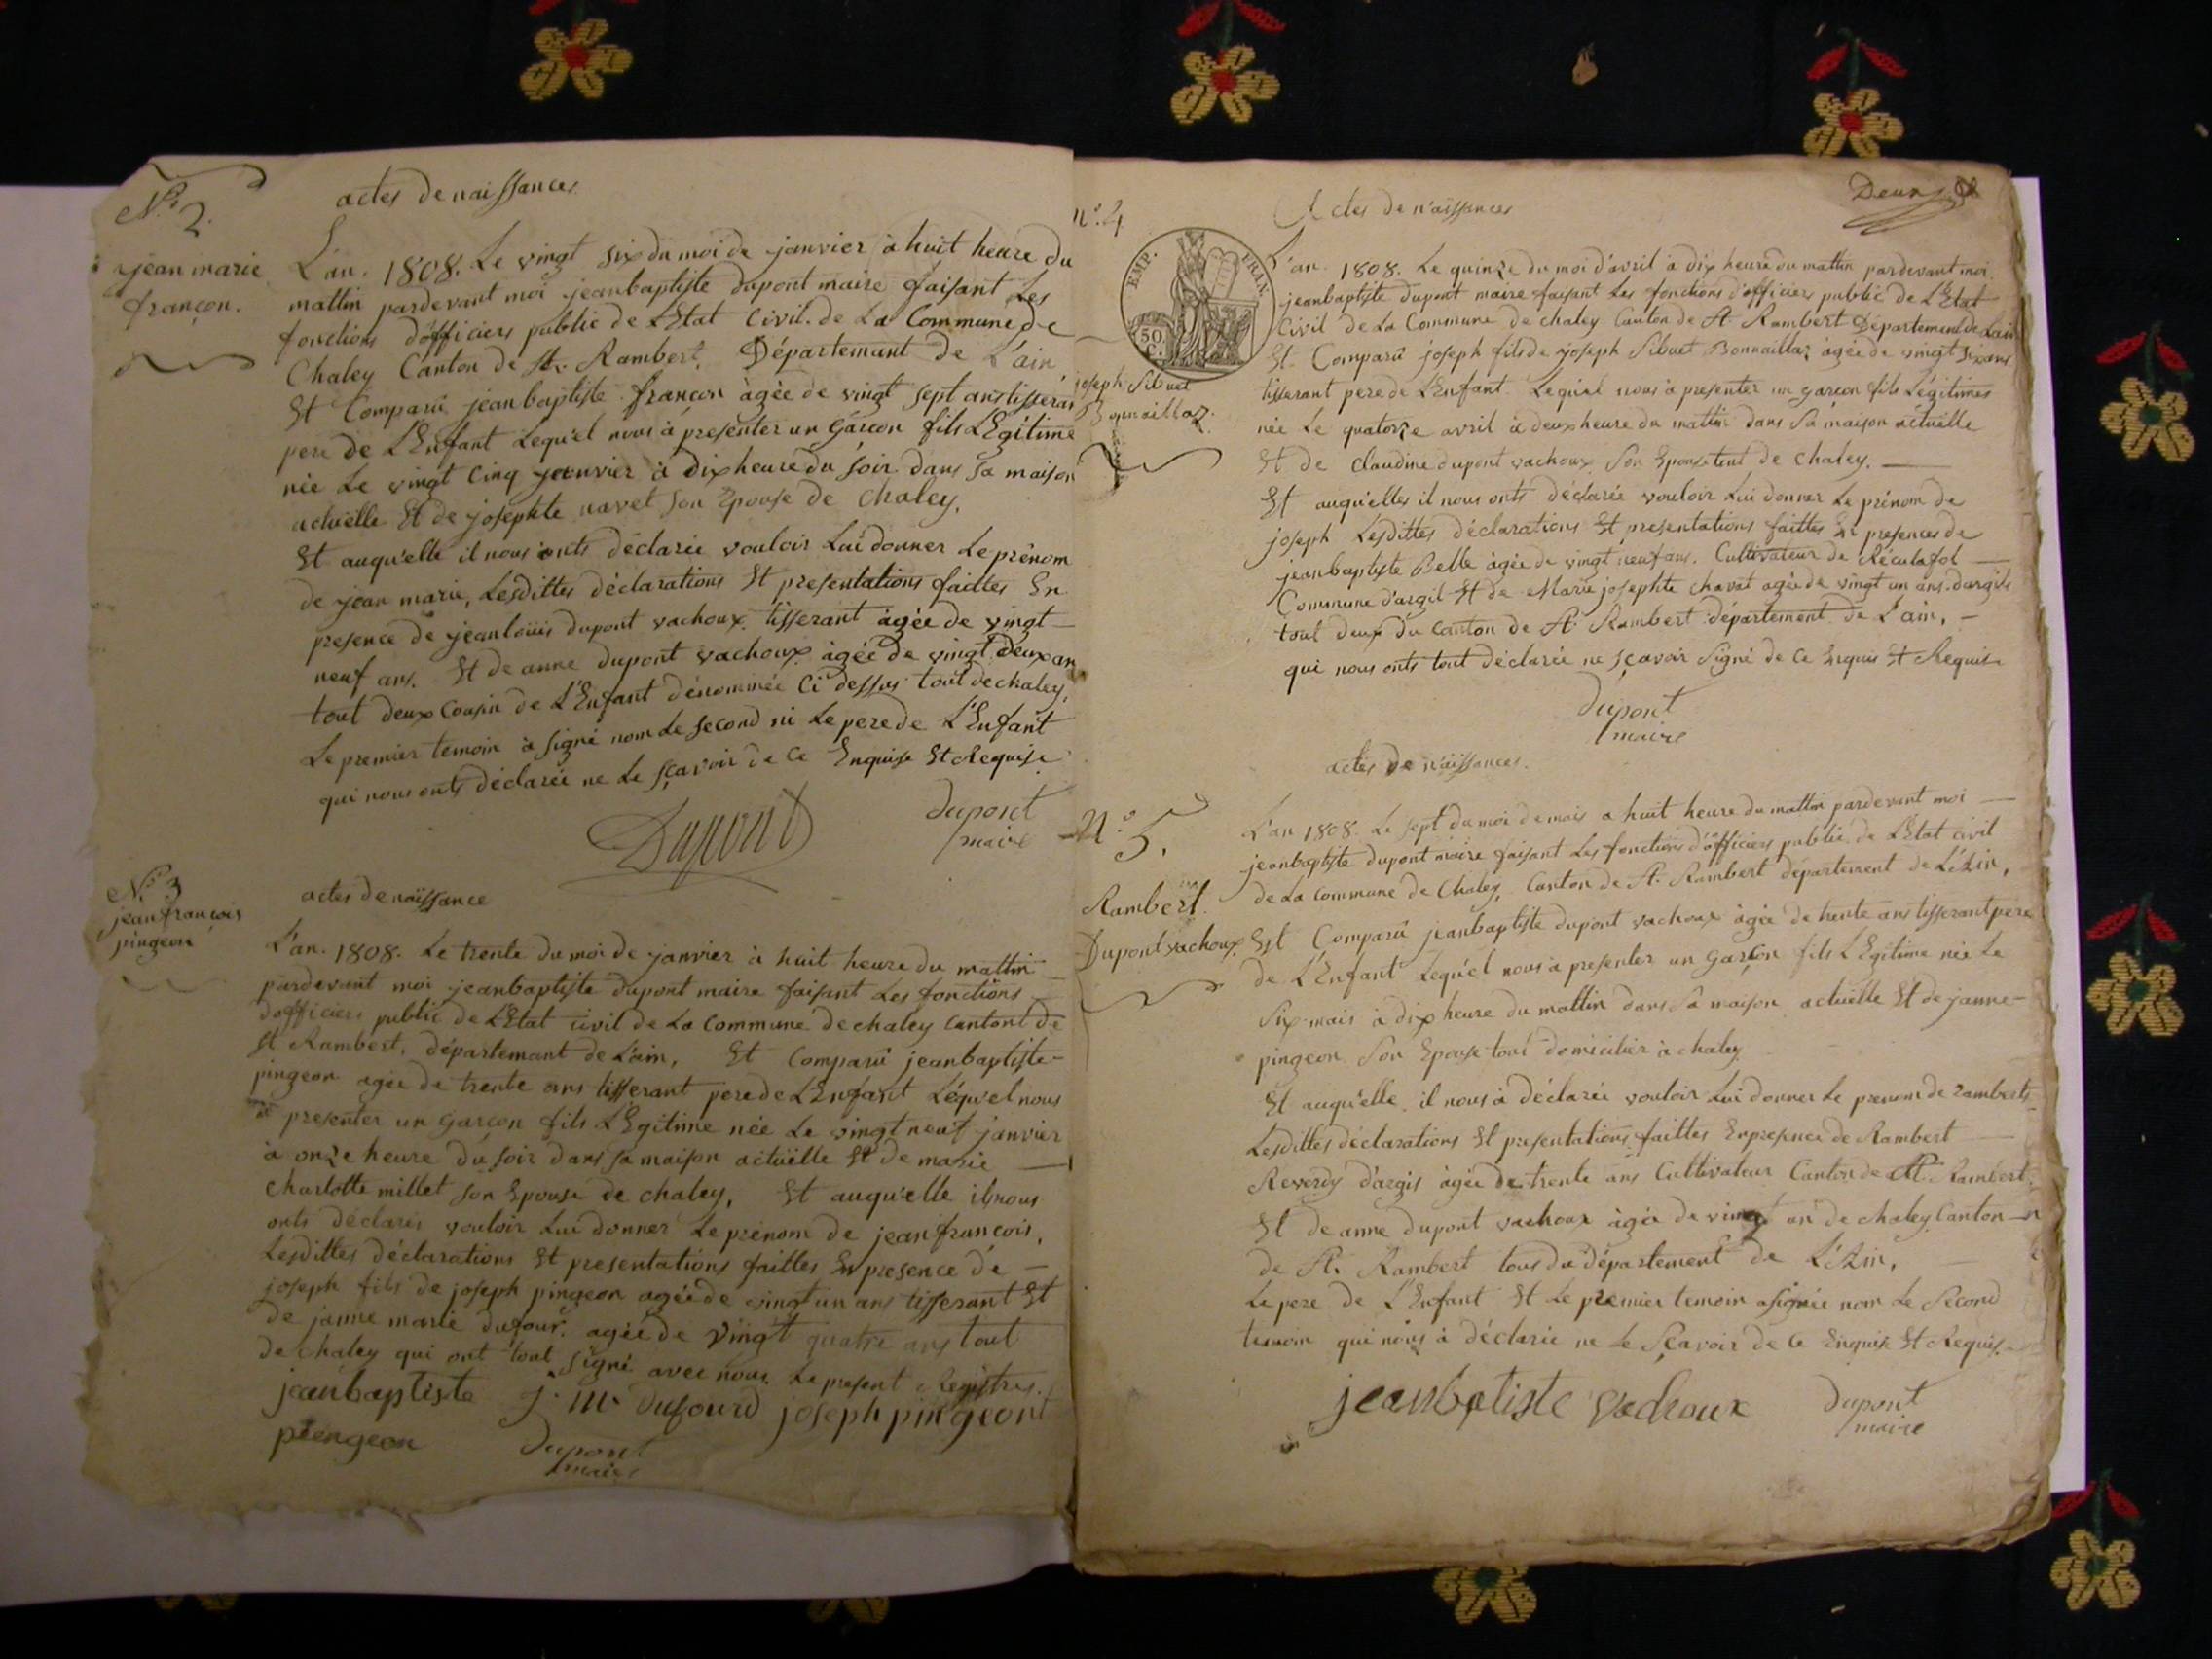 N.º 2.
jean marie
françon.
actes de naissances
L'an. 1808. Le vingt six du moi de janvier à huit heure du
mattin pardevant moi jeanbaptiste dupont maire faisant Les
fonctions d'officiers public de L'Etat Civil. de La Commune de
Chaley Canton de St. Rambert. Département de L'ain
Et Comparû jeanbaptiste françon àgée de vingt sept ans tisseran
pere de L'Enfant Lequ'el nous à presenter un Garçon fils LEgitime
née Le vingt Cinq janvier à dix heure du soir dans sa maison
actuëlle Et de josephte navet son Epouse de Chaley.
Et auqu'elle il nous onts déclarée vouloir Lui donner Le prénom
de jean marie, Lesdittes déclarations Et presentations faittes En
presence de jeanloüis dupont vachoux. tisserant àgée de vingt
neuf ans. Et de anne dupont vachoux àgée de vingt deux an
tout deux Cousin de L'Enfant dénommée Ci dessus tout de chaley,
Le premier temoin à signé nom Le second ni Le pere de L'Enfant
qui nous onts déclarée ne Le sçavoir de Ce Enquise Et Requise
Dupont
dupont
maire
N.º 3
jean françois
pingeon
actes de naissance
L'an. 1808. Le trente du moi de janvier à huit heure du mattin
pardevant moi jeanbaptiste dupont maire faisant Les fonctions
d'officiers public de L'Etat civil de La Commune de chaley Cantont de
St Rambert, département de L'ain, Et Comparû jeanbaptiste
pingeon agée de trente ans tisserant pere de L'Enfant Léqu'el nous
à presenter un garçon fils LEgitime née Le vingt neuf janvier
à onze heure du soir dans sa maison actuëlle Et de marie
charlotte millet son Epouse de chaley, Et auqu'elle il nous
onts déclarés vouloir Lui donner Le prénom de jean françois,
Lesdittes déclarations Et presentations faittes En presence de
joseph fils de joseph pingeon agée de vingt un ans tisserant Et
de janne marie dufour. agée de vingt quatre ans tout
de chaley qui ont tout signé avec nous Le present Registres.
jeanbaptiste j. m. dufourd joseph pingeont
piengeon dupont
maire
Deux
n.º 4
Actes de naissances
EMP. FRAN.
50 C.
joseph Sibuet
Bonnaillaz.
L'an. 1808. Le quinze du moi d'avril à dix heure du mattin pardevant moi
jeanbaptiste dupont maire faisant Les fonctions d'officiers public de L'Etat
Civil de La Commune de chaley Canton de St. Rambert Département de Lain
Et Comparû joseph fils de joseph Sibuet Bonnaillaz àgée de vingt six ans
tisserant pere de L'Enfant Lequ'el nous à presenter un garçon fils Légitimes
née Le quatorze avril à deux heure du mattin dans Sa maison actuëlle
Et de Claudine dupont vachoux Son Epouse tout de chaley.
Et auqu'elles il nous onts déclarée vouloir Lui donner Le prénom de
joseph Lesdittes déclarations Et presentations faittes En presences de
jeanbaptiste Belle àgée de vingt neuf ans. Cultivateur de Réculafol
Commune d'argil Et de Marie josephte chavat agée de vingt un ans d'argis
tout deux du Canton de St. Rambert département de L'ain,
qui nous onts tout déclarée ne sçavoir Signé de Ce Enquis Et Requise
dupont
maire
actes de naissances.
N.º 5.
Rambert.
Dupont vachoux
L'an 1808. Le sept du moi de mais a huit heure du mattin pardevant moi
jeanbaptiste dupont maire faisant Les fonctions d'officiers public de L'Etat civil
de La Commune de Chaley, Canton de St. Rambert département de L'Ain,
Est Comparû jeanbaptiste dupont vachoux àgée de trente ans tisserant pere
de L'Enfant Lequ'el nous à presenter un Garçon fils LEgitime née Le
Six mais à dix heure du mattin dans Sâ maison actuëlle Et de janne
pingeon Son Epouse tout domicilier à chaley
Et auqu'elle il nous à déclarée vouloir Lui donner Le prenom de ramberts
Lesdittes déclarations Et presentations faittes En presence de Rambert
Reverdy d'argis àgée de trente ans Cultivateur Canton de St. Rambert.
Et de anne dupont vachoux àgée de vingt un de chaley Canton
de St. Rambert tous du département de L'Ain.
Le pere de L'Enfant Et Le premier temoin asignée nom Le Second
temoin qui nous à déclarée ne Le Sçavoir de Ce Enquise Et Requise
jeanbatiste vachoux dupont
maire